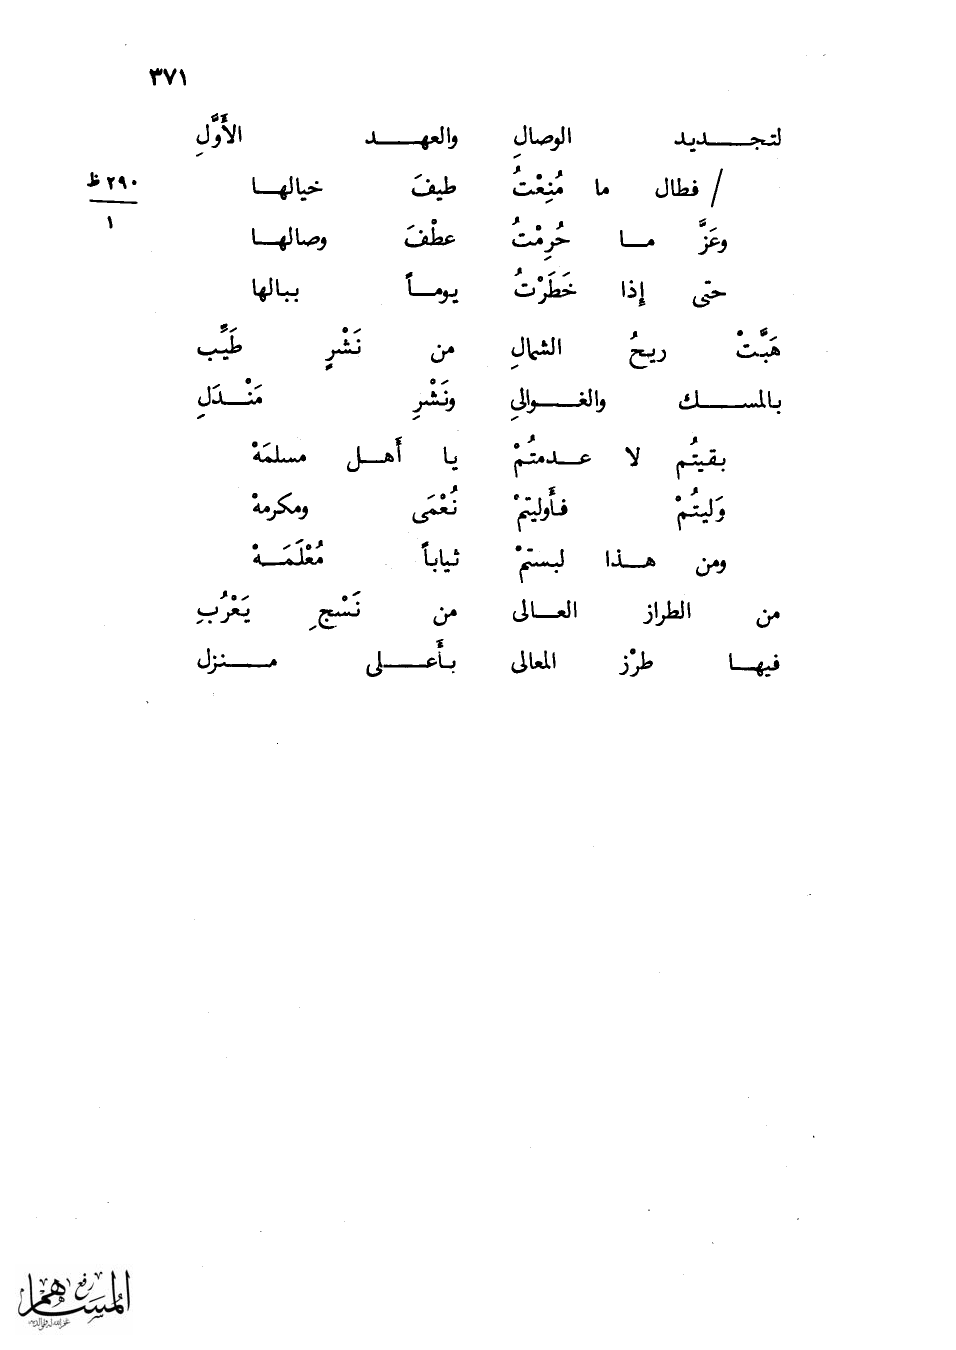 ٣٧١
لتجـــديد الوصالِ والعهـــد الأَوَّلِ
/ فطال ما مُنِعْتُ طيفَ خيالهـا
٢٩٠ ظ
١
وعَزَّ مـا حُرِمْتُ عطْفَ وصالهـا
حتى إِذا خَطَرْتُ يومـاً ببالها
هَبَّتْ ريحُ الشمالِ من نَشْرٍ طَيِّب
بالمســـك والغـــوالىِ ونَشْرِ مَنْـــدَلِ
بقيتُم لا عـــدمتُمْ يا أَهـل مسلمَهْ
وَليتُمْ فأَوليتمْ نُعْمَى ومكرمهْ
ومن هـذا لبستمْ ثياباً مُعْلَمَـهْ
من الطراز العـالى من نَسْجِ يَعْرُبِ
فيهـا طرْز المعالى بأَعـــلى مـــنزل
رفع
المساهم
غفر الله له ولوالديه